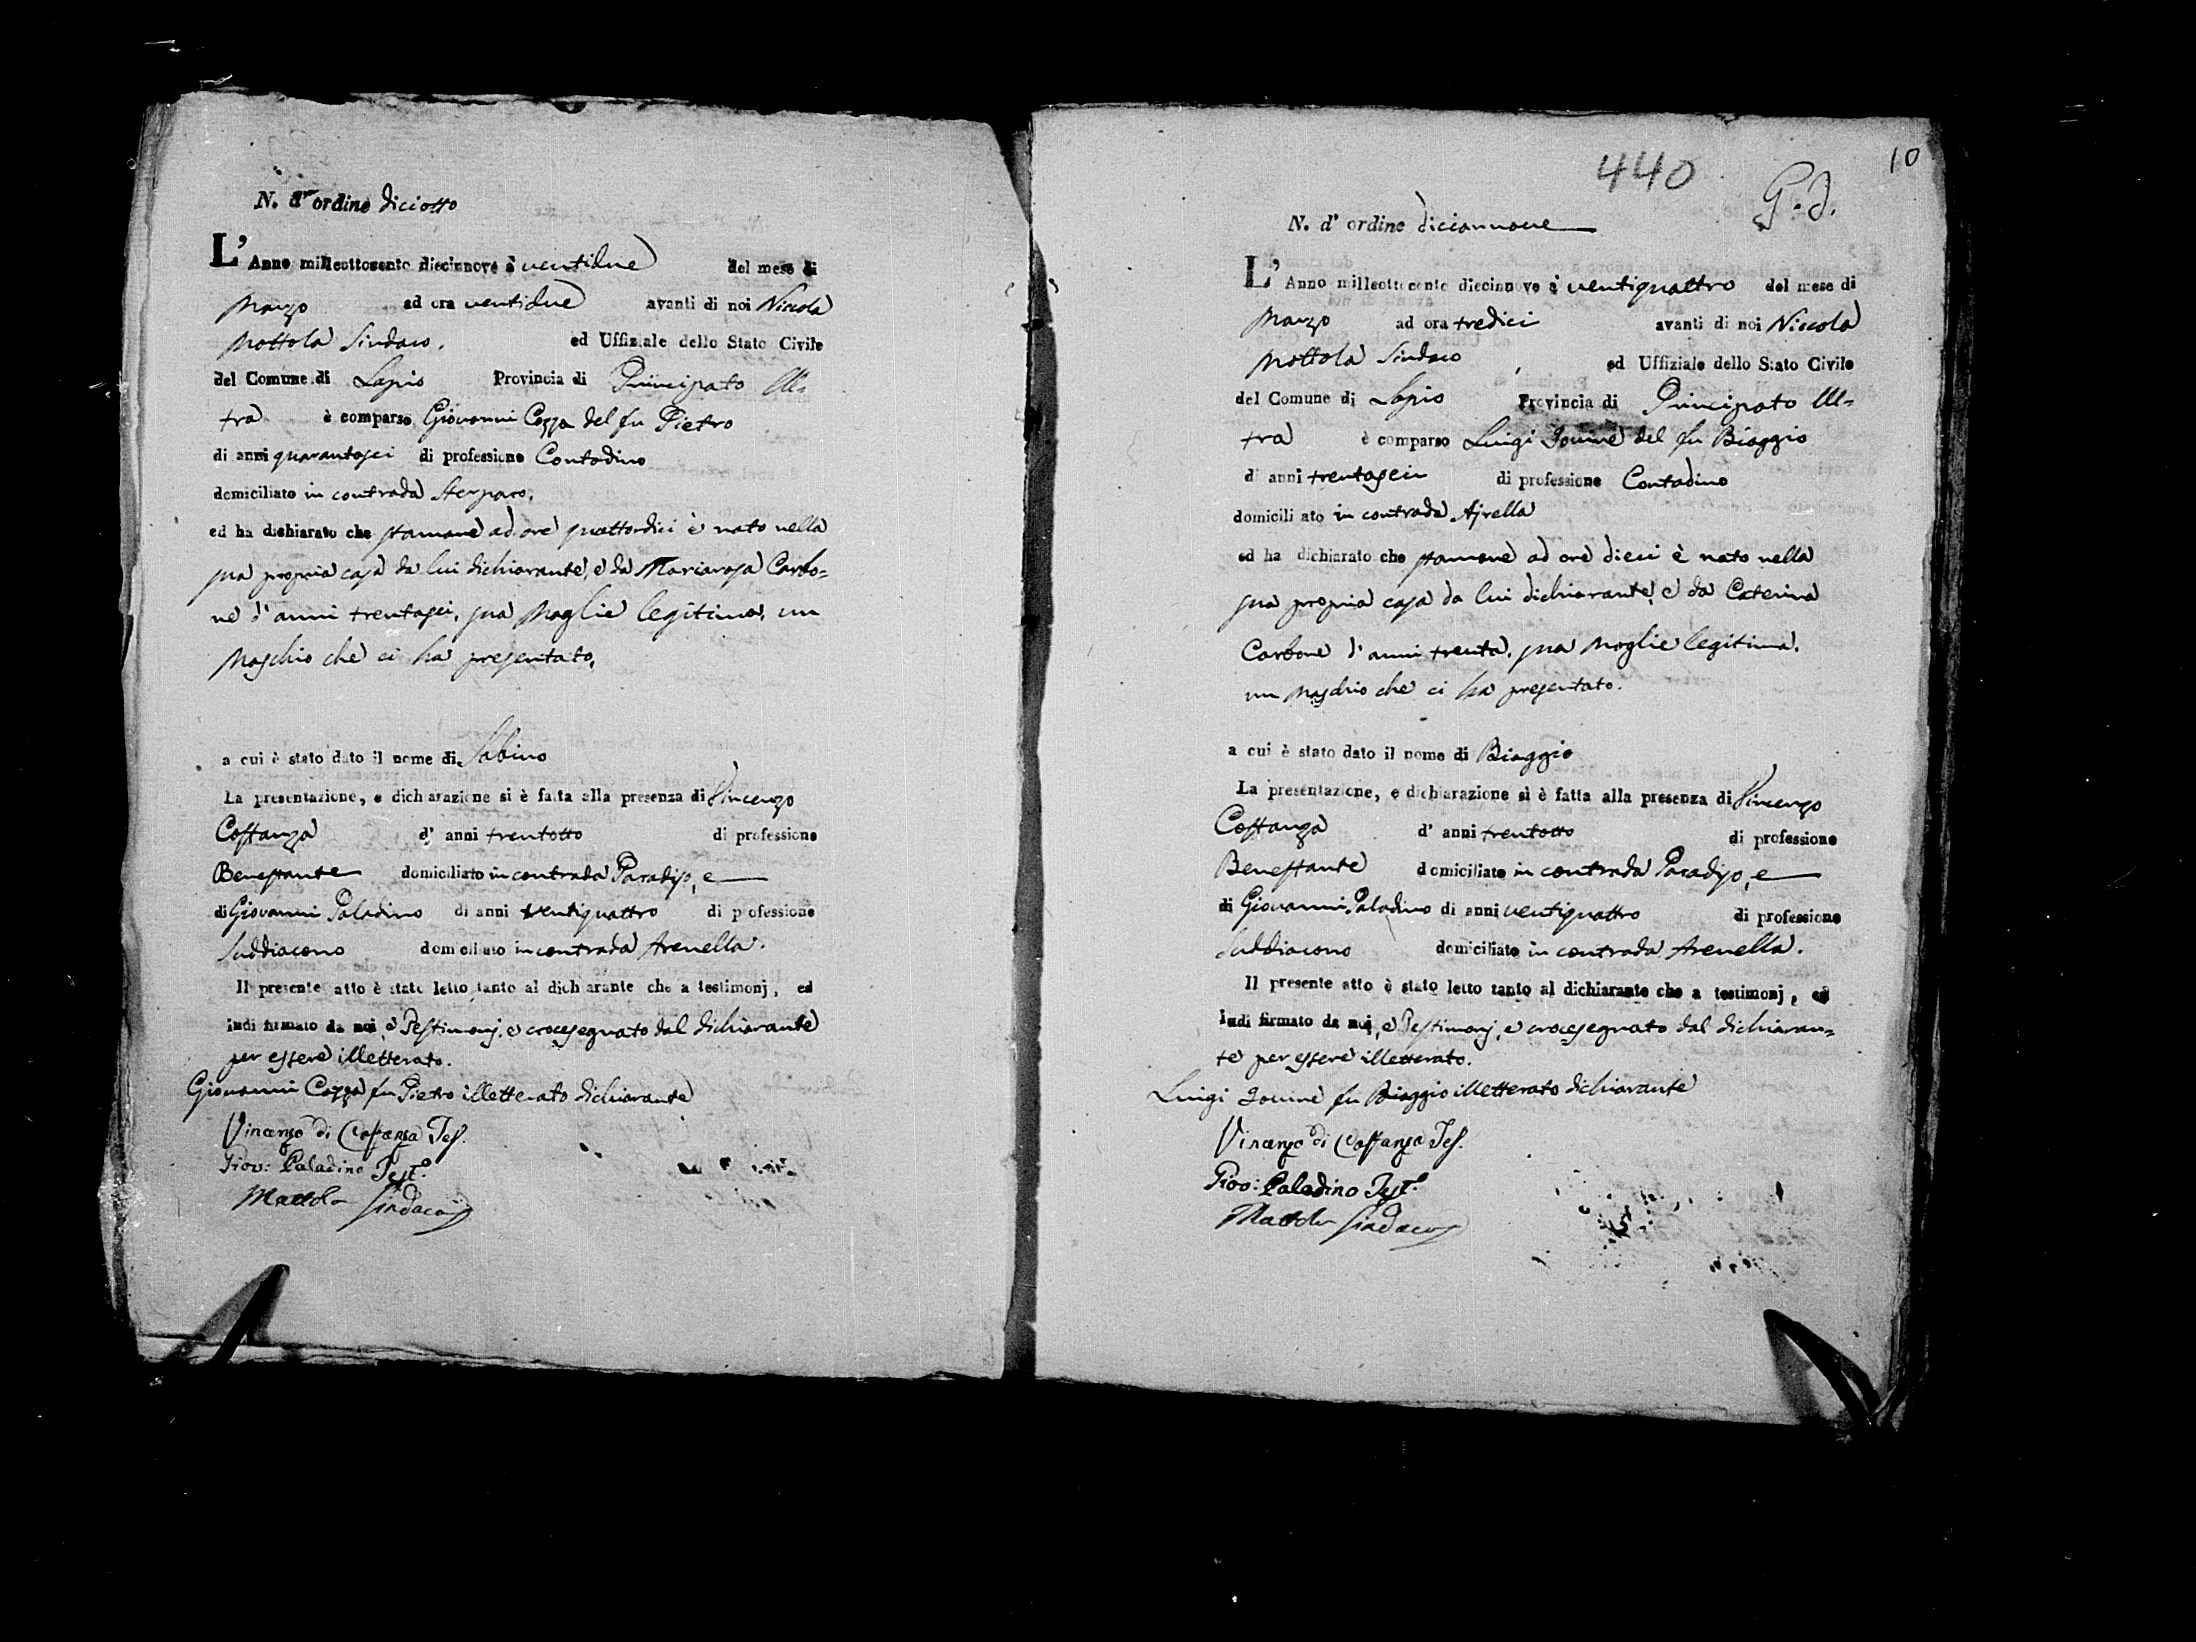 N. d'ordine diciotto
L'Anno milleottocento diecinnove à ventidue del mese di
Marzo ad ora ventidue avanti di noi Niccola
Mottola Sindaco, ed Uffiziale dello Stato Civile
del Comune di Lapio Provincia di Principato Ul=
tra è comparso Giovanni Cozza del fu Pietro
di anni quarantasei di professione Contadino
domiciliato in contrada Sterparo,
ed ha dichiarato che stamane ad ore quattordici è nato nella
sua propria casa da lui dichiarante, e da Mariarosa Carbo=
ne d'anni trentasei, sua Moglie legitima, un
Maschio che ci ha presentato,
a cui è stato dato il nome di Sabino
La presentazione, e dichiarazione si è fatta alla presenza di Vincenzo
Costanza d' anni trentotto di professione
Benestante domiciliato in contrada Paradiso, e
di Giovanni Paladino di anni ventiquattro di professione
Suddiacono domiciliato in contrada Arenella.
Il presente atto è stato letto tanto al dichiarante che a testimonj, ed
indi firmato da noi, e Testimonj, e crocesegnato dal dichiarante
per essere illetterato.
Giovanni Cozza fu Pietro illetterato dichiarante
Vincenzo di Costanza Tes.
Giov: Paladino Test.º
Mottola Sindaco
10
440
G. J.
N. d' ordine diciannove
L'Anno milleottocento diecinnove à ventiquattro del mese di
Marzo ad ora tredici avanti di noi Niccola
Mottola Sindaco, ed Uffiziale dello Stato Civile
del Comune di Lapio Provincia di Principato Ul=
tra è comparso Luigi Iovine del fu Biaggio
di anni trentasei di professione Contadino
domiciliato in contrada Ajrella
ed ha dichiarato che stamane ad ore dieci è nato nella
sua propria casa da lui dichiarante, e da Caterina
Carbone d'anni trenta, sua Moglie legitima,
un Maschio che ci ha presentato.
a cui è stato dato il nome di Biaggio
La presentazione, e dichiarazione si è fatta alla presenza di Vincenzo
Costanza d' anni trentotto di professione
Benestante domiciliato in contrada Paradiso, e
di Giovanni Paladino di anni ventiquattro di professione
Suddiacono domiciliato in contrada Arenella.
Il presente atto è stato letto tanto al dichiarante che a testimonj, ed
indi firmato da noi, e Testimonj, e crocesegnato dal dichiaran=
te per essere illetterato.
Luigi Iovine fu Biaggio illetterato dichiarante
Vincenzo di Costanza Tes.
Giov: Paladino Test.º
Mottola Sindaco